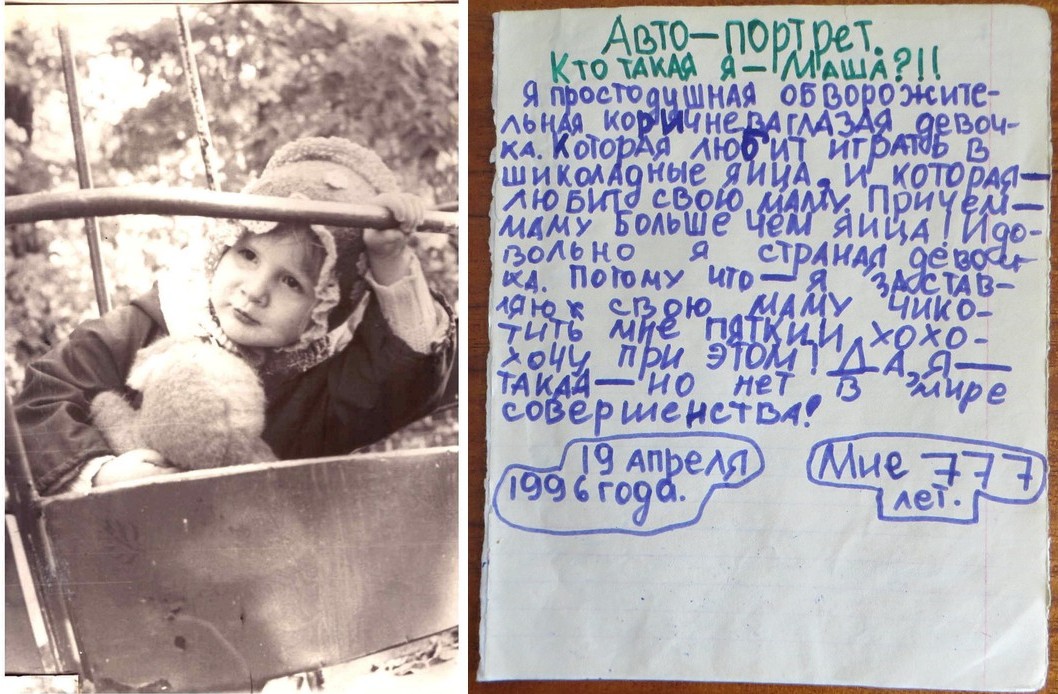 Авто-портрет.
Кто такая я - Маша?!!
Я простодушная обворожите-
льная коричневаглазая девоч-
ка. Которая любит играть в
шиколадные яйца, и которая -
любит свою маму. Причем -
маму больше чем яйца! И до-
вольно я страная девоч-
ка. Потому что - я застав-
ляю свою маму чико-
тить мне пятки и хохо-
хочу при этом! Да, я -
такая - но нет в мире
совершенства!
19 апреля
1996 года.
Мне 777
лет.